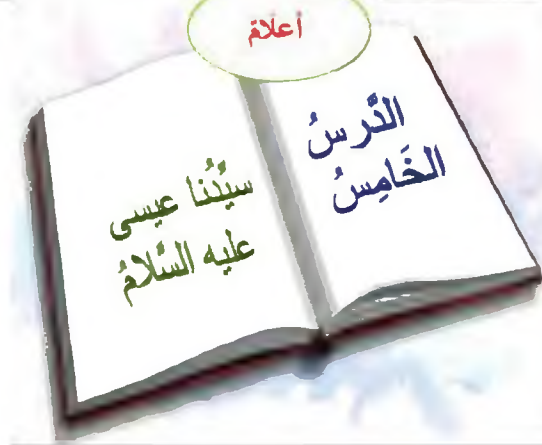 أعلام
الدَّرسُ
الخَامِسُ
سيِّدُنا عيسى
عليه السَّلامُ